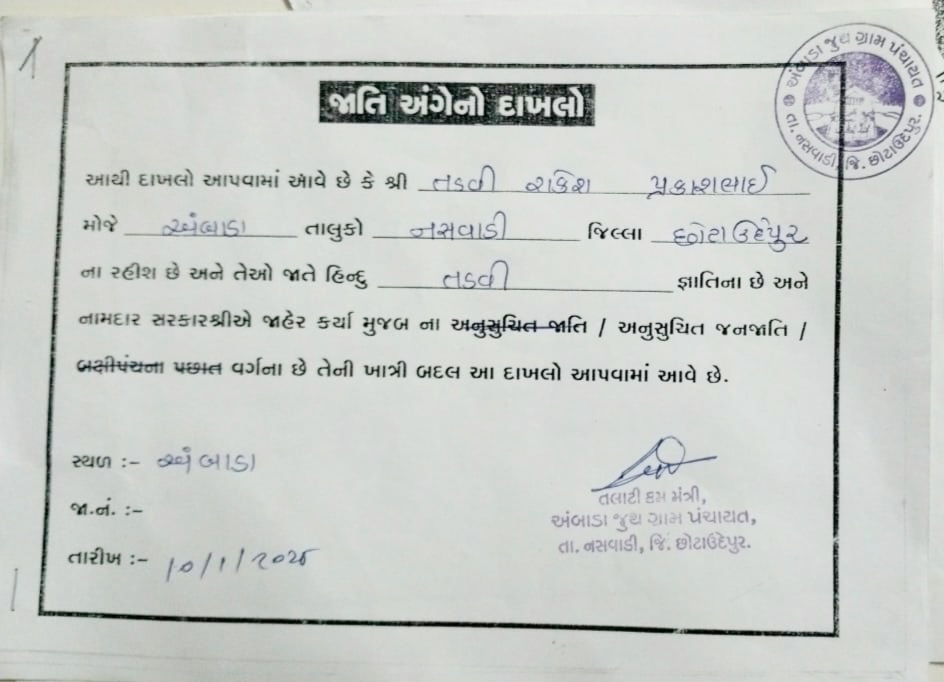 1
અંબાડા જુથ ગ્રામ પંચાયત
તા. નસવાડી, જિ. છોટાઉદેપુર.
જાતિ અંગેનો દાખલો
આથી દાખલો આપવામાં આવે છે કે શ્રી તડવી રાકેશ પ્રકાશભાઈ
મોજે અંબાડા તાલુકો નસવાડી જિલ્લા છોટાઉદેપુર
ના રહીશ છે અને તેઓ જાતે હિન્દુ તડવી જ્ઞાતિના છે અને
નામદાર સરકારશ્રીએ જાહેર કર્યા મુજબ ના અનુસુચિત જાતિ / અનુસુચિત જનજાતિ /
બક્ષીપંચના પછાત વર્ગના છે તેની ખાત્રી બદલ આ દાખલો આપવામાં આવે છે.
સ્થળ :- અંબાડા
જા.નં. :-
તારીખ :- 10/1/2025
તલાટી કમ મંત્રી,
અંબાડા જુથ ગ્રામ પંચાયત,
તા. નસવાડી, જિ. છોટાઉદેપુર.